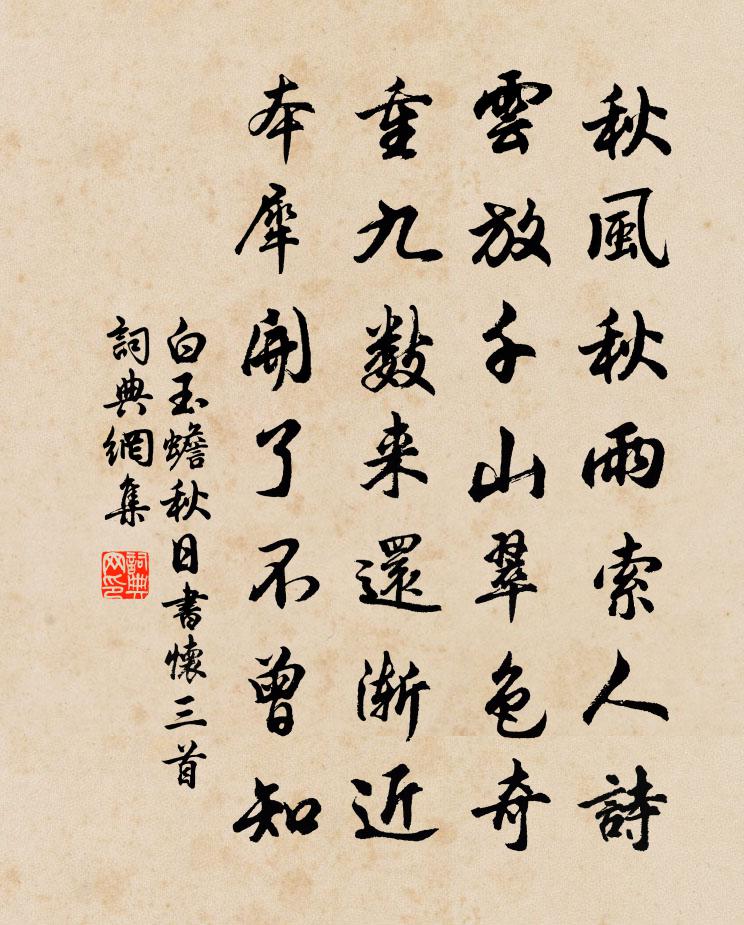 秋風秋雨索人詩
雲放千山翠色奇
重九數来還漸近
本犀開了不曾知
白玉蟾秋日書懷三首
詞典網集
詞典网印